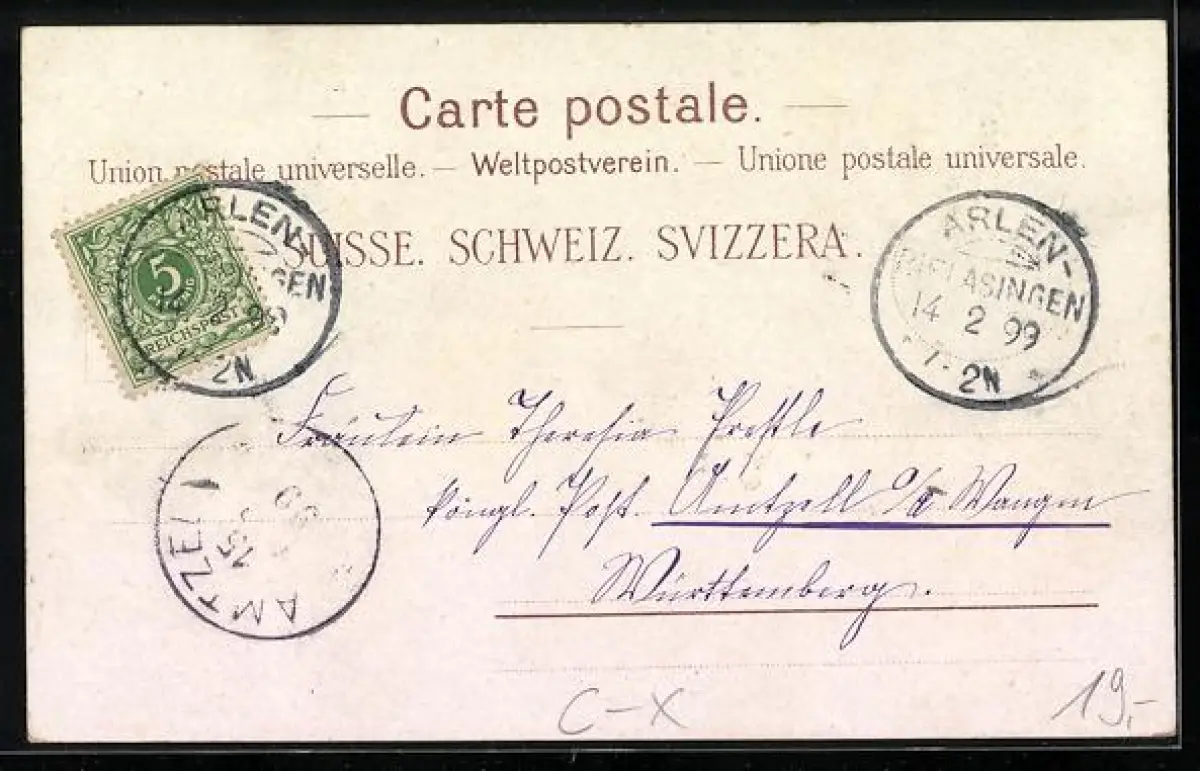 Carte postale.
Union postale universelle. — Weltpostverein. — Unione postale universale.
SUISSE. SCHWEIZ. SVIZZERA.
5
REICHSPOST
ARLEN-
2N
ARLEN-
RIELASINGEN
14 2 99
2N
Fräulein Theresia
königl. Post. Amtzell o/a Wangen
Württemberg.
AMTZELL
C-X
19,-